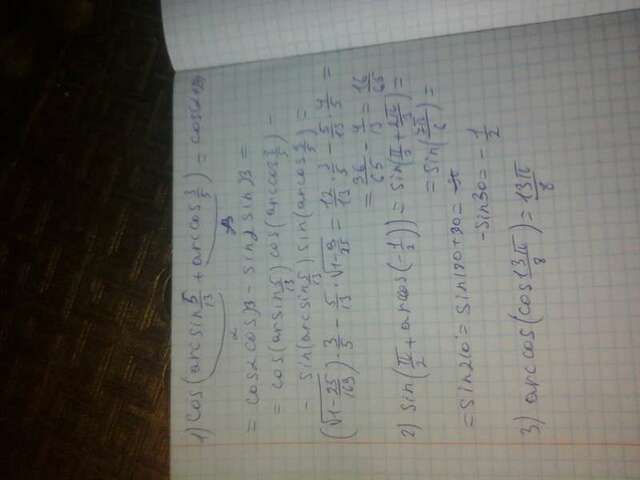 1) cos(arcsin 5/13 + arccos 3/5) = cos(α+β)
= cosα cosβ - sinα sinβ =
= cos(arcsin 5/13) cos(arccos 3/5) -
- sin(arcsin 5/13) sin(arccos 3/5) =
(√1-25/169) · 3/5 - 5/13 · √1-9/25 = 12/13 · 3/5 - 5/13 · 4/5 =
= 36/65 - 4/13 = 16/65
2) sin(π/2 + arccos(-1/2)) = sin(π/2 + 2π/3) =
= sin(7π/6) =
= sin210° = sin180+30 =
-sin30 = -1/2
3) arccos(cos(13π/8) = 13π/8